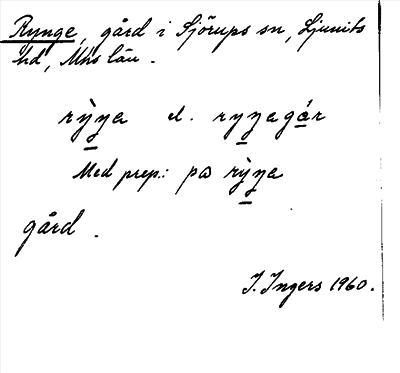 Rynge, gård i Sjörups sn, Ljunits
hd, Mhs län.
rỳŋa el. ryŋagár
Med prep.: pa rỳŋa
gård.
I. Ingers 1960.